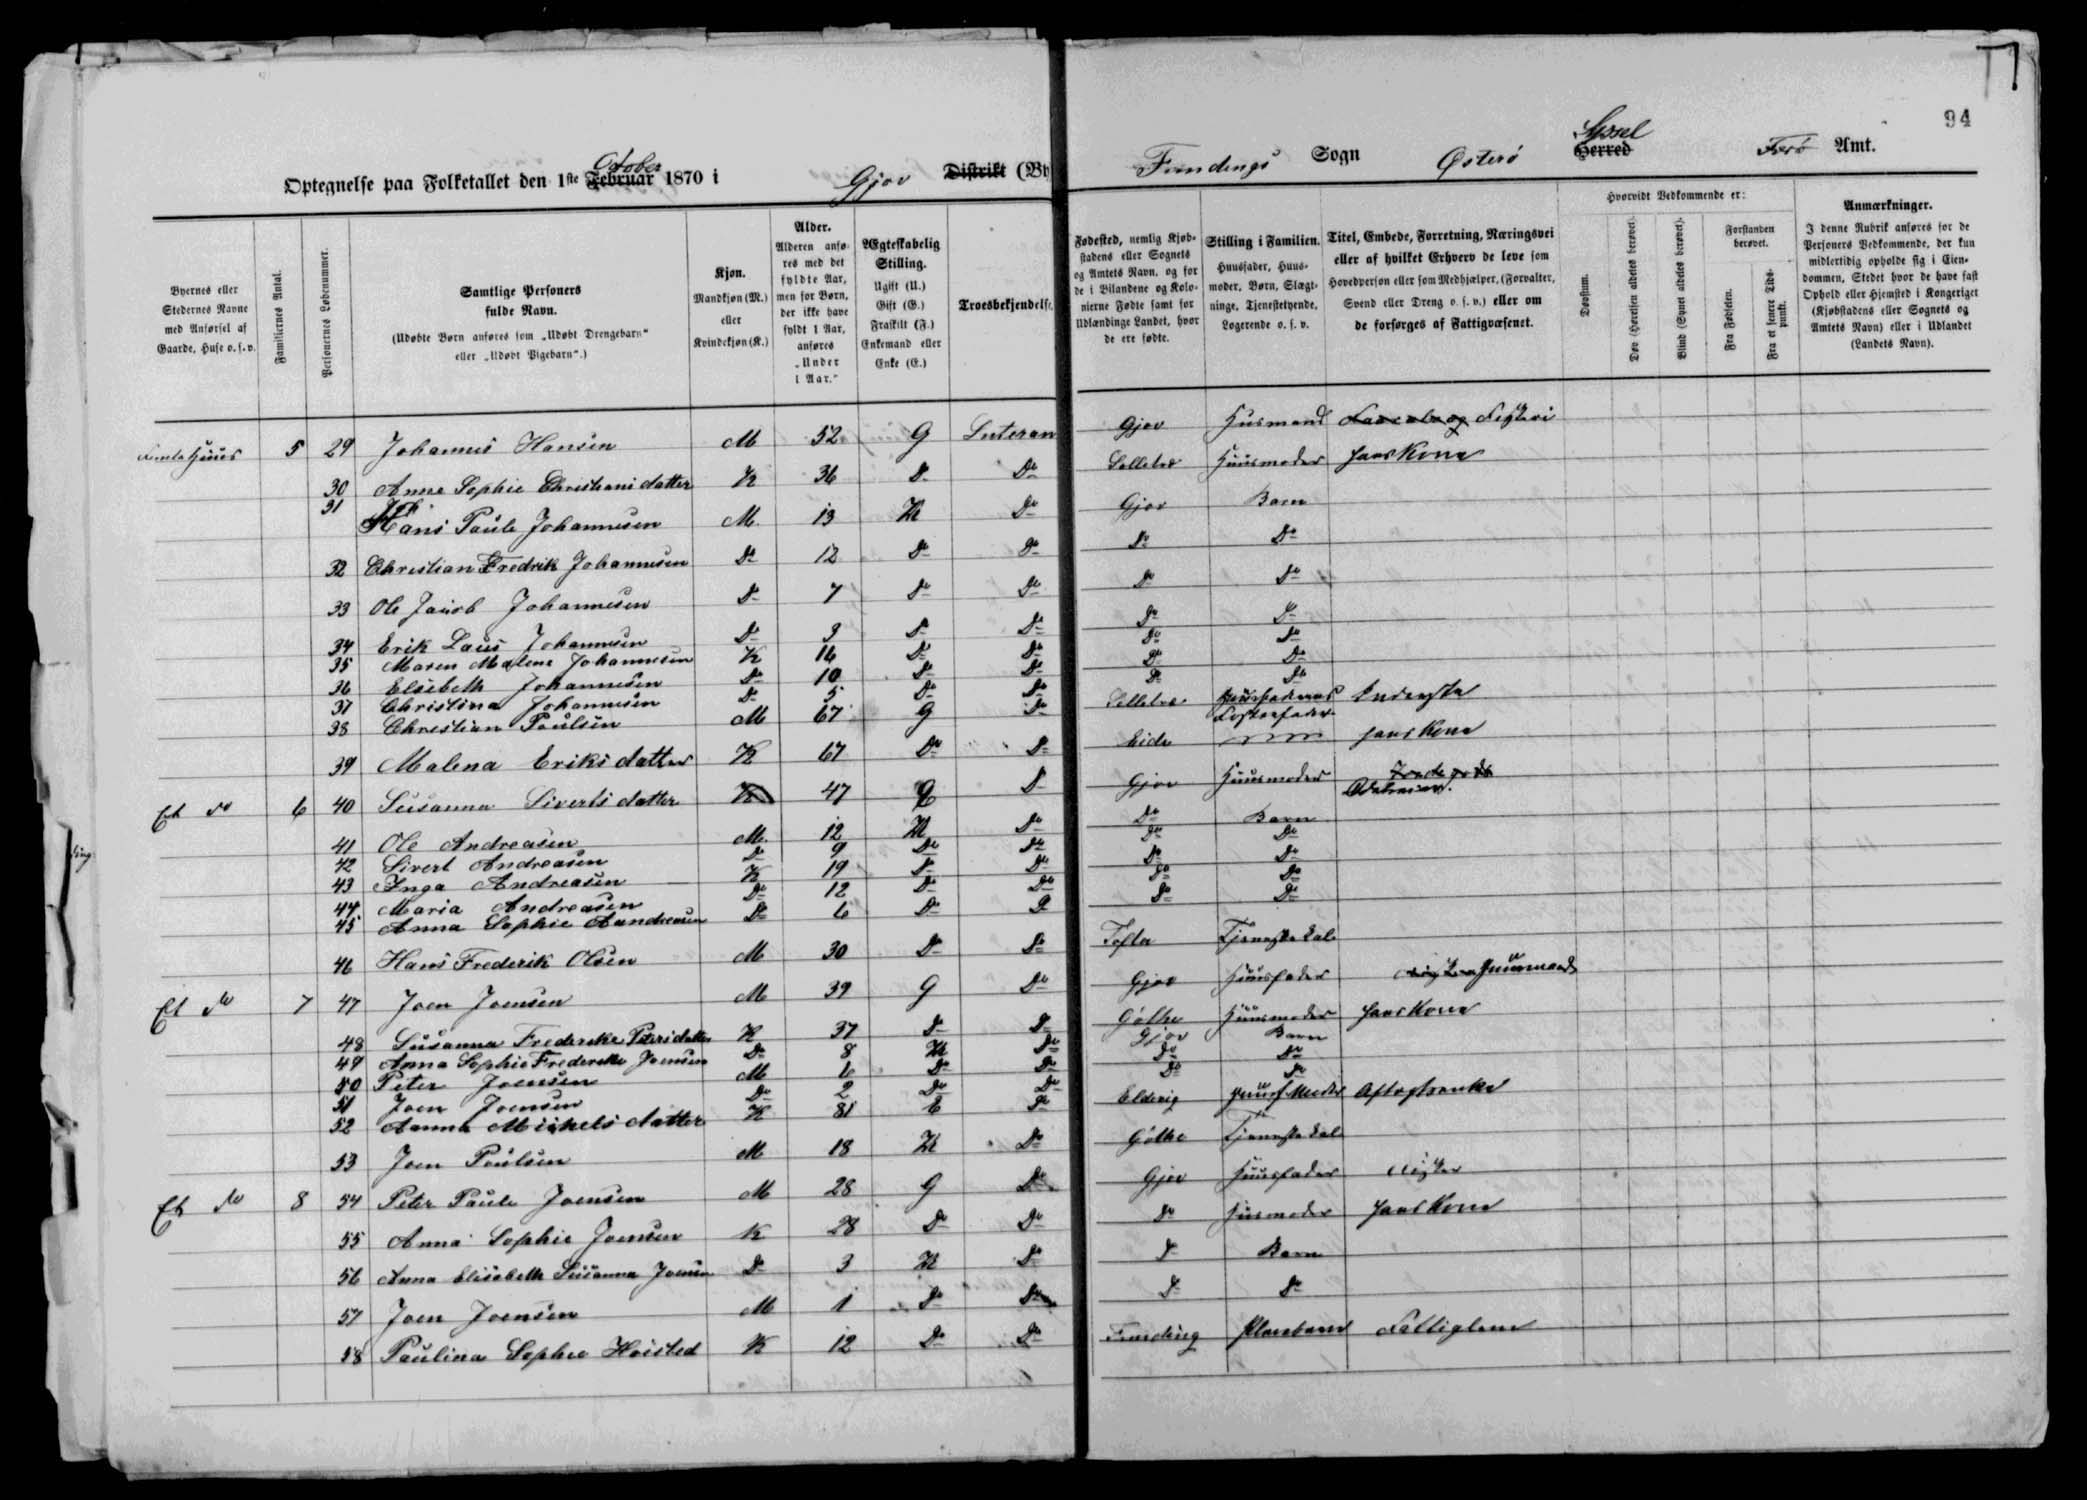 94
October
Optegnelse paa Folketallet den 1ste Februar 1870 i Gjov Distrikt (By
Fundings Sogn Østerø Herred Færø Amt.
Syssel
Byernes eller Stedernes Navne med Anførsel af Gaarde, Huse o. s. v.
Familiernes Antal.
Personernes Løbenummer.
Samtlige Personers fulde Navn.
(Udøbte Børn anføres som „Udøbt Drengebarn“ eller „Udøbt Pigebarn“.)
Kjøn. Mandkjøn (M.) eller Kvindekjøn (K.)
Alder. Alderen anføres med det fyldte Aar, men for Børn, der ikke have fyldt 1 Aar, anføres „Under 1 Aar.“
Ægteskabelig Stilling. Ugift (U.) Gift (G.) Fraskilt (F.) Enkemand eller Enke (E.)
Troesbekjendelse
Fødested, nemlig Kjøbstadens eller Sognets og Amtets Navn, og for de i Bilandene og Kolonierne Fødte samt for Udlændinge Landet, hvor de ere fødte.
Stilling i Familien. Huusfader, Huusmoder, Børn, Slægtninge, Tjenestetyende, Logerende o. s. v.
Titel, Embede, Forretning, Næringsvei eller af hvilket Erhverv de leve som Hovedperson eller som Medhjælper, (Forvalter, Svend eller Dreng o. s. v.) eller om de forsørges af Fattigvæsenet.
Hvorvidt Vedkommende er:
Døvstum.
Døv (Hørelsen aldeles berøvet).
Blind (Synet aldeles berøvet).
Forstanden berøvet.
Fra Fødselen.
Fra et senere Tidspunkt.
Anmærkninger.
I denne Rubrik anføres for de Personers Vedkommende, der kun midlertidig opholde sig i Eiendommen, Stedet hvor de have fast Ophold eller Hjemsted i Kongeriget (Kjøbstadens eller Sognets og Amtets Navn) eller i Udlandet (Landets Navn).
Huus 5 29 Johannes Hansen M 52 G Luteran Gjov Husmand Fiskeri
30 Anne Sophie Christiansdatter K 36 Do Do Selletræ Huusmoder hans Kone
31 Hans Paule Johannesen M. 13 U Do Gjov Barn
32 Christian Fredrik Johannesen Do 12 Do Do Do Do
33 Ole Jacob Johannesen Do 7 Do Do Do Do
34 Erik Laus Johannesen Do 9 Do Do Do Do
35 Maren Malene Johannesen K 16 Do Do Do Do
36 Elsebeth Johannesen Do 10 Do Do Do Do
37 Christina Johannesen Do 5 Do Do Do Do
38 Christian Poulsen M 67 G Do Selletræ Fosterfader
39 Malena Eriksdatter K 67 Do Do Eide hans Kone
Et do 6 40 Susanna Sivertsdatter K 47 G D Gjov Huusmoder
41 Ole Andreasen M. 12 U Do Do Barn
42 Sivert Andreasen Do 9 Do Do Do Do
43 Inga Andreasen K 19 Do Do Do Do
44 Maria Andreasen Do 12 Do Do Do Do
45 Anna Sophie Aandreasen Do 6 Do D Do Do
46 Hans Frederik Olsen M 30 Do Do Tofta Tjenestekal
Et do 7 47 Joen Joensen M 39 G Do Gjov Huusfader Huusmand
48 Susanna Frederike Petersdatter K 37 Do Do Gøthe Huusmoder hans Kone
49 Anna Sophie Frederikke Joensen Do 8 U Do Gjov Barn
50 Peter Joensen M 6 Do Do Do Do
51 Joen Joensen Do 2 Do Do Do Do
52 Aanna Mickelsdatter K 81 E Do Eldevig
53 Joen Poulsen M 18 U Do Gøthe Tjenestekal
Et do 8 54 Peter Paule Joensen M 28 G Do Gjov Huusfader Fisker
55 Anna Sophie Joensen K 28 D Do Do Husmoder hans Kone
56 Anna Elisebeth Susanna Joensen D 3 U Do D Barn
57 Joen Joensen M 1 Do Do D Do
58 Paulina Sophie Høisted K 12 Do Do Funding Pleiebarn Fattiglem